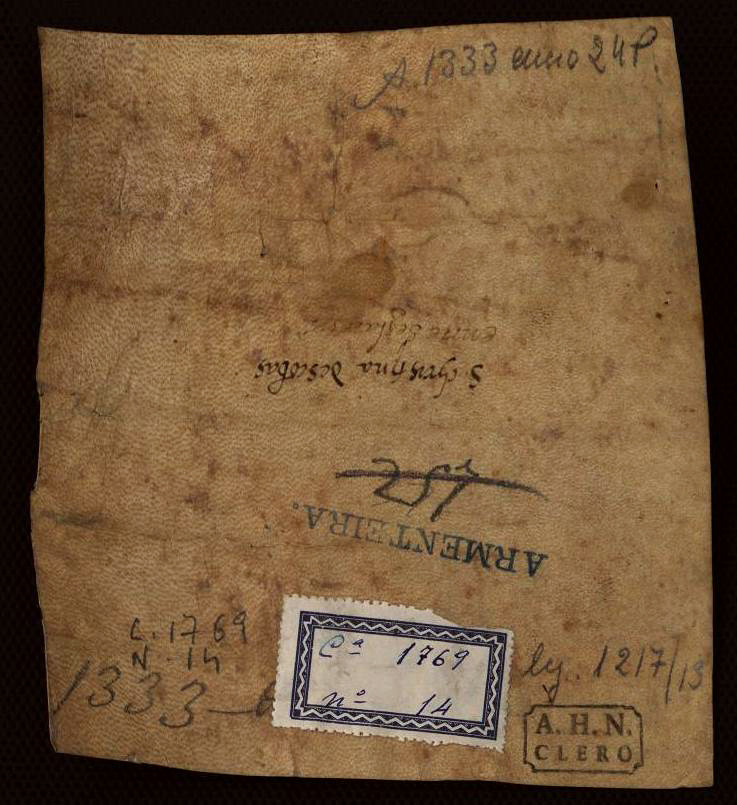 A. 1333 enero 24 P.
S. Christina
ARMENTEIRA.
C. 1769
N. 14
1333
Cª 1769
nº 14
leg. 1217/13
A. H. N.
CLERO